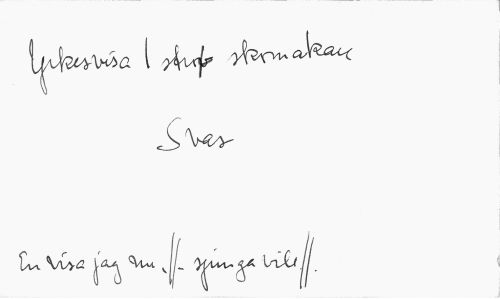 Yrkesvisa 1 strof skomakare
Svar
En visa jag nu .//- sjunga vill //.